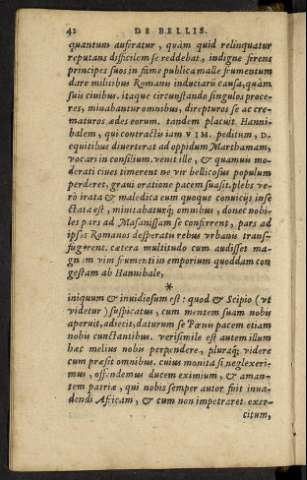 42 DE BELLIS.
quantum auferatur, quàm quid relinquatur
reputans difficilem se reddebat, indigne ferens
principes suos in fame publica malle frumentum
dare militibus Romanis induciarū causa, quàm
suis ciuibus. itaque circunstando singulos proce-
res, minabantur omnibus, direpturos se ac cre-
maturos ædes eorum. tandem placuit Hanni-
balem, qui contractis iam VIM. peditum, D.
equitibus diuerterat ad oppidum Marthamam,
vocari in consilium. venit ille, & quamuis mo-
derati ciues timerent ne vir bellicosus populum
perderet, graui oratione pacem suasit. plebs ve-
rò irata & maledica eum quoque conuicijs inse
ctata est, minitabaturq́; omnibus, donec nobi-
les pars ad Masanissam se conferrent, pars ad
ipsos Romanos desperatis rebus vrbanis transf-
fugerent. cætera multitudo cum audisset ma-
gnam vim frumenti in emporium quoddam con
gestam ab Hannibale,
*
iniquum & inuidiosum est: quod & Scipio (vt
videtur) suspicatus, cum mentem suam nobis
aperuit, adiecit, daturum se Pœnis pacem etiam
nobis cunctantibus. verisimile est autem illum
hæc melius nobis perpendere, pluraq́; videre
cum præsit omnibus. cuius monita si neglexeri-
mus, offendemus ducem eximium, & aman-
tem patriæ, qui nobis semper autor fuit inua-
dendi Africam, & cum non impetraret exer-
citum,